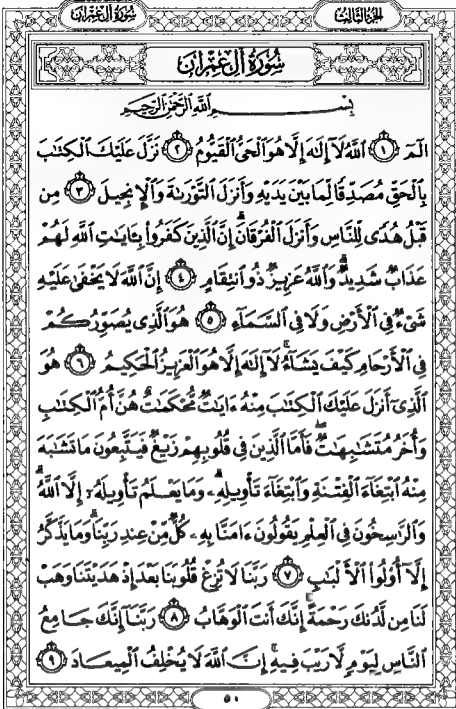 سُورَةُ آلِ عِمْرَان
الجُزْءُ الثَّالِثُ
سُورَةُ آلِ عِمْرَان
بِسْمِ ٱللَّهِ ٱلرَّحْمَٰنِ ٱلرَّحِيمِ
الٓمٓ ١ ٱللَّهُ لَآ إِلَٰهَ إِلَّا هُوَ ٱلْحَىُّ ٱلْقَيُّومُ ٢ نَزَّلَ عَلَيْكَ ٱلْكِتَٰبَ
بِٱلْحَقِّ مُصَدِّقًا لِّمَا بَيْنَ يَدَيْهِ وَأَنزَلَ ٱلتَّوْرَىٰةَ وَٱلْإِنجِيلَ ٣ مِن
قَبْلُ هُدًى لِّلنَّاسِ وَأَنزَلَ ٱلْفُرْقَانَۗ إِنَّ ٱلَّذِينَ كَفَرُوا۟ بِـَٔايَٰتِ ٱللَّهِ لَهُمْ
عَذَابٌ شَدِيدٌۗ وَٱللَّهُ عَزِيزٌ ذُو ٱنتِقَامٍ ٤ إِنَّ ٱللَّهَ لَا يَخْفَىٰ عَلَيْهِ
شَىْءٌ فِى ٱلْأَرْضِ وَلَا فِى ٱلسَّمَآءِ ٥ هُوَ ٱلَّذِى يُصَوِّرُكُمْ
فِى ٱلْأَرْحَامِ كَيْفَ يَشَآءُۚ لَآ إِلَٰهَ إِلَّا هُوَ ٱلْعَزِيزُ ٱلْحَكِيمُ ٦ هُوَ
ٱلَّذِىٓ أَنزَلَ عَلَيْكَ ٱلْكِتَٰبَ مِنْهُ ءَايَٰتٌ مُّحْكَمَٰتٌ هُنَّ أُمُّ ٱلْكِتَٰبِ
وَأُخَرُ مُتَشَٰبِهَٰتٌۖ فَأَمَّا ٱلَّذِينَ فِى قُلُوبِهِمْ زَيْغٌ فَيَتَّبِعُونَ مَا تَشَٰبَهَ
مِنْهُ ٱبْتِغَآءَ ٱلْفِتْنَةِ وَٱبْتِغَآءَ تَأْوِيلِهِۦۗ وَمَا يَعْلَمُ تَأْوِيلَهُۥٓ إِلَّا ٱللَّهُۗ
وَٱلرَّٰسِخُونَ فِى ٱلْعِلْمِ يَقُولُونَ ءَامَنَّا بِهِۦ كُلٌّ مِّنْ عِندِ رَبِّنَاۗ وَمَا يَذَّكَّرُ
إِلَّآ أُو۟لُوا۟ ٱلْأَلْبَٰبِ ٧ رَبَّنَا لَا تُزِغْ قُلُوبَنَا بَعْدَ إِذْ هَدَيْتَنَا وَهَبْ
لَنَا مِن لَّدُنكَ رَحْمَةًۚ إِنَّكَ أَنتَ ٱلْوَهَّابُ ٨ رَبَّنَآ إِنَّكَ جَامِعُ
ٱلنَّاسِ لِيَوْمٍ لَّا رَيْبَ فِيهِۚ إِنَّ ٱللَّهَ لَا يُخْلِفُ ٱلْمِيعَادَ ٩
٥٠